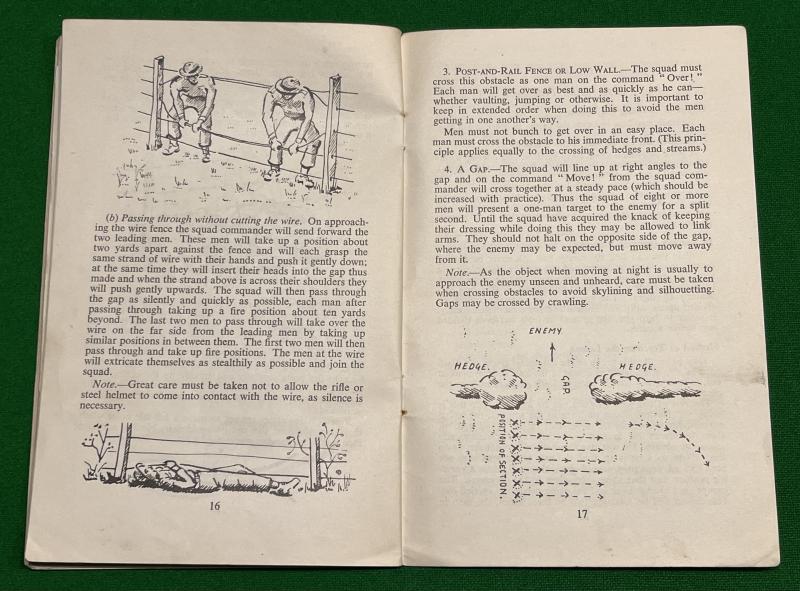 (b) Passing through without cutting the wire. On approach-
ing the wire fence the squad commander will send forward the
two leading men. These men will take up a position about
two yards apart against the fence and will each grasp the
same strand of wire with their hands and push it gently down;
at the same time they will insert their heads into the gap thus
made and when the strand above is across their shoulders they
will push gently upwards. The squad will then pass through
the gap as silently and quickly as possible, each man after
passing through taking up a fire position about ten yards
beyond. The last two men to pass through will take over the
wire on the far side from the leading men by taking up
similar positions in between them. The first two men will then
pass through and take up fire positions. The men at the wire
will extricate themselves as stealthily as possible and join the
squad.
Note.—Great care must be taken not to allow the rifle or
steel helmet to come into contact with the wire, as silence is
necessary.
16
3. POST-AND-RAIL FENCE OR LOW WALL.—The squad must
cross this obstacle as one man on the command "Over!"
Each man will get over as best and as quickly as he can—
whether vaulting, jumping or otherwise. It is important to
keep in extended order when doing this to avoid the men
getting in one another's way.
Men must not bunch to get over in an easy place. Each
man must cross the obstacle to his immediate front. (This prin-
ciple applies equally to the crossing of hedges and streams.)
4. A GAP.—The squad will line up at right angles to the
gap and on the command "Move!" from the squad com-
mander will cross together at a steady pace (which should be
increased with practice). Thus the squad of eight or more
men will present a one-man target to the enemy for a split
second. Until the squad have acquired the knack of keeping
their dressing while doing this they may be allowed to link
arms. They should not halt on the opposite side of the gap,
where the enemy may be expected, but must move away
from it.
Note.—As the object when moving at night is usually to
approach the enemy unseen and unheard, care must be taken
when crossing obstacles to avoid skylining and silhouetting.
Gaps may be crossed by crawling.
ENEMY
HEDGE.
GAP.
HEDGE.
POSITION OF SECTION.
17